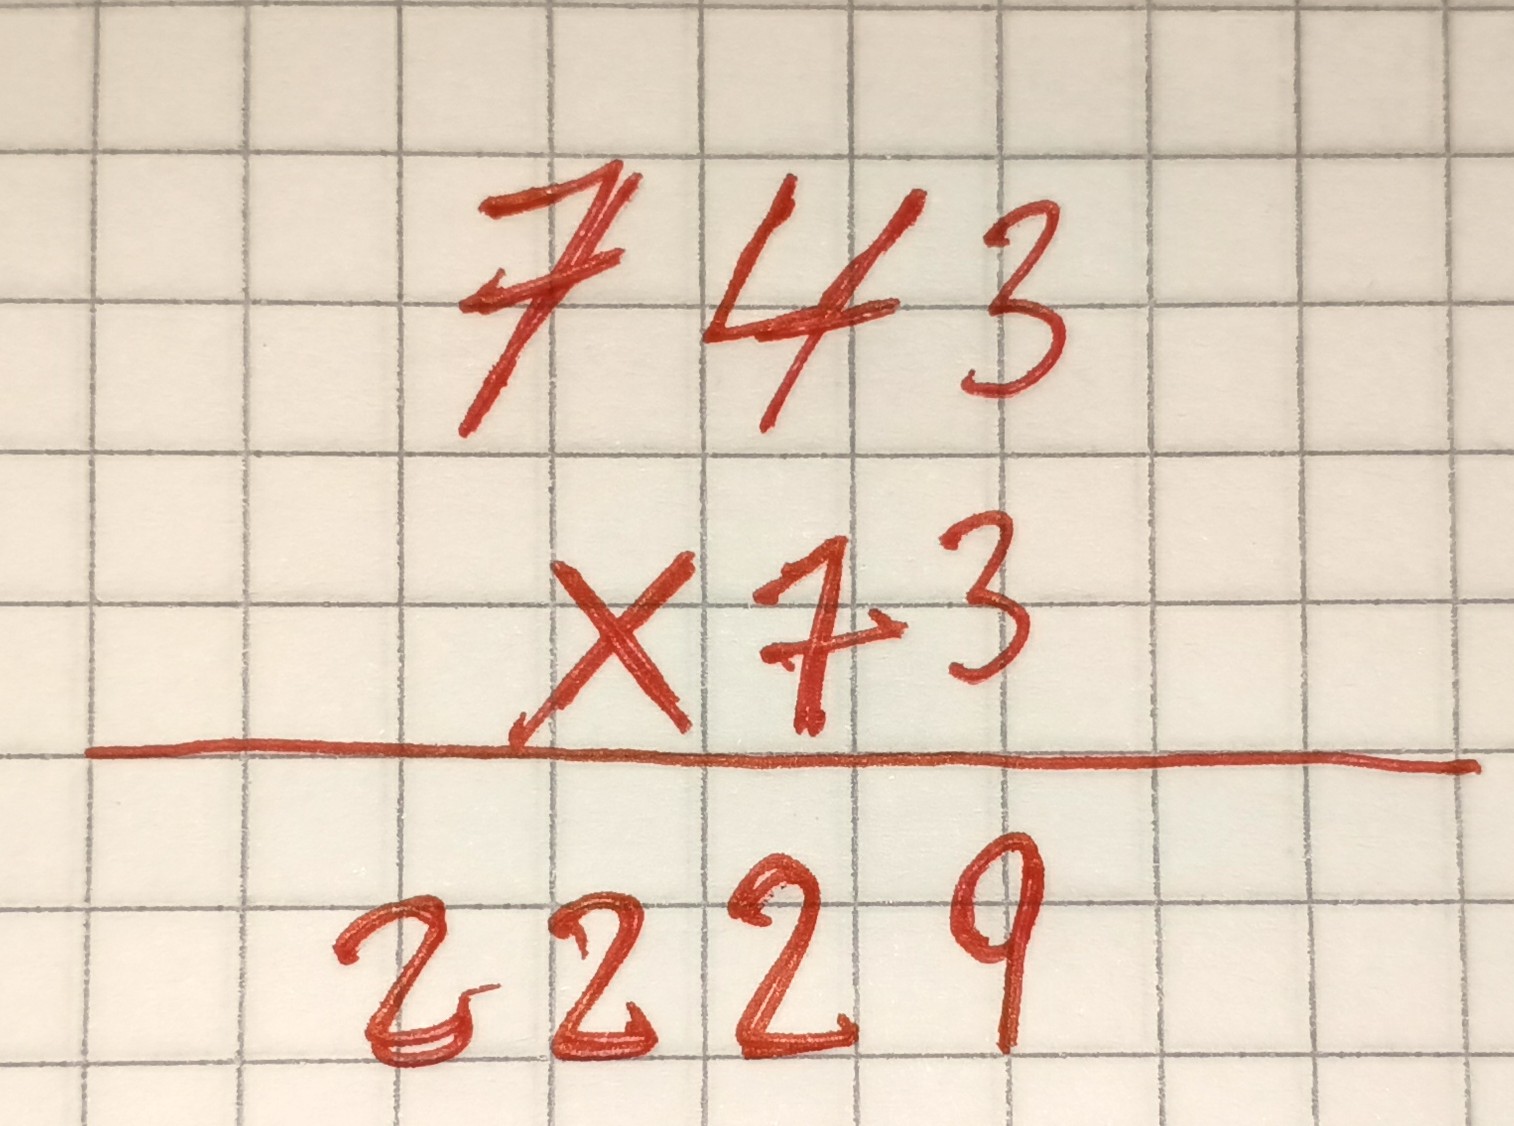 743
×73
2229